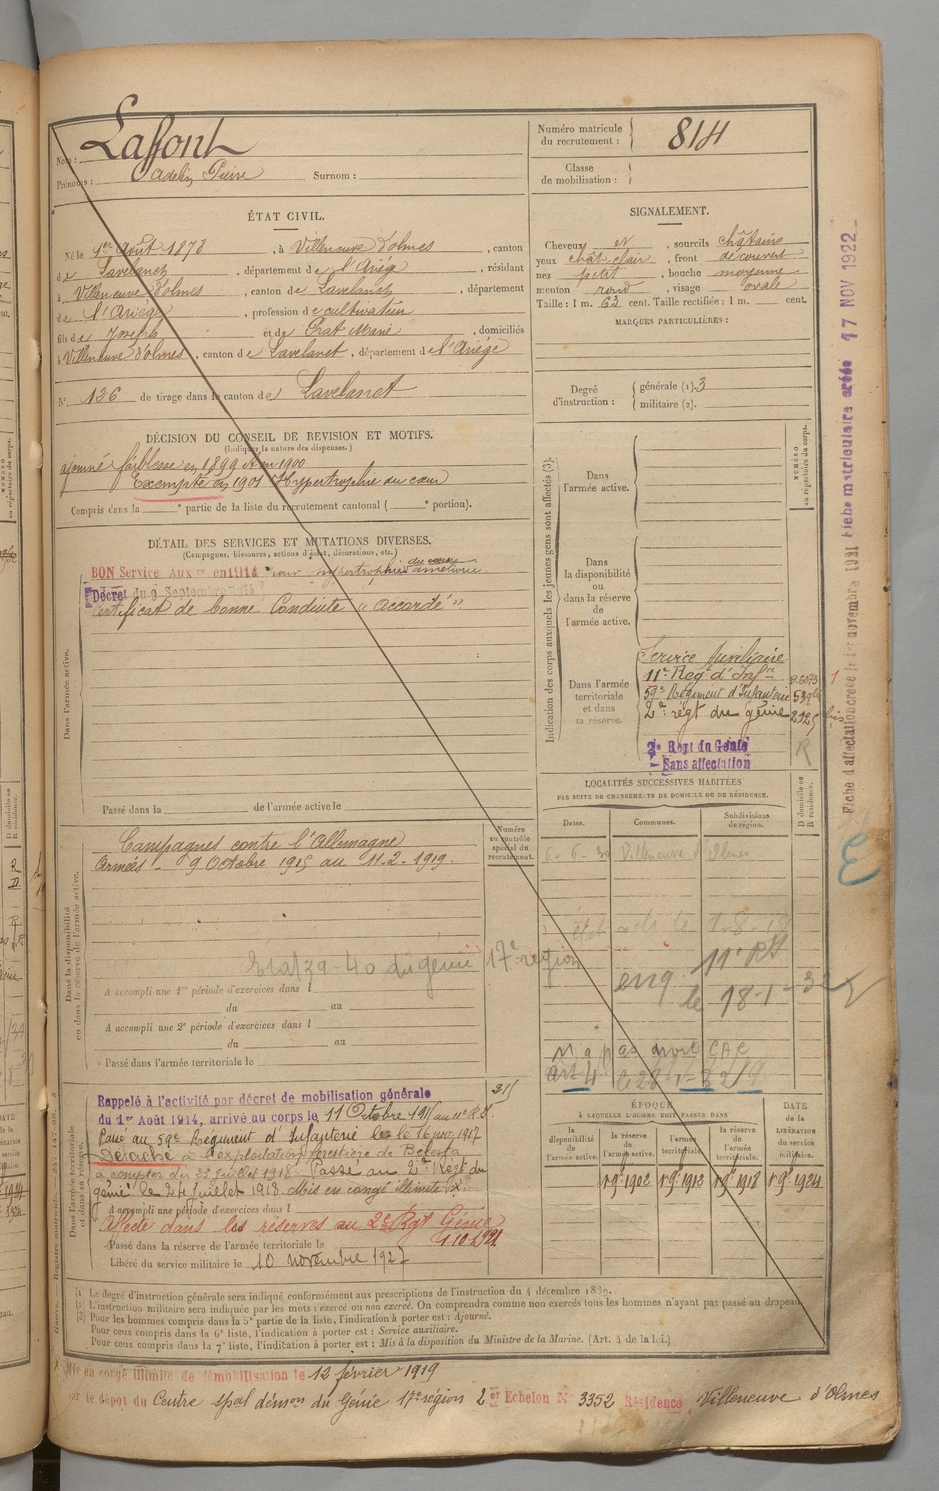 Nom : Laffont
Prénoms : Adelin Pierre Surnom :
Numéro matricule du recrutement : 814
Classe de mobilisation :
ÉTAT CIVIL.
Né le 1er Août 1878, à Villeneuve d'olmes, canton
de Lavelanet, département de l'Ariège, résidant
à Villeneuve d'olmes, canton de Lavelanet, département
de l'Ariège, profession de cultivateur
fils de Joseph et de Prat Marie, domiciliés
à Villeneuve d'olmes, canton de Lavelanet, département de l'Ariège
N° 126 de tirage dans le canton de Lavelanet
SIGNALEMENT.
Cheveux et, sourcils châtains
yeux chat clair, front découvert
nez petit, bouche moyenne
menton rond, visage ovale
Taille : 1 m. 62 cent. Taille rectifiée : 1 m. cent.
MARQUES PARTICULIÈRES :
Degré d'instruction : générale (1). 3
militaire (2).
DÉCISION DU CONSEIL DE REVISION ET MOTIFS.
(Indiquer la nature des dispenses.)
ajourné faiblesse en 1899 et en 1900
Exempté en 1901 Hypertrophie du cœur
Compris dans la e partie de la liste du recrutement cantonal ( e portion).
DÉTAIL DES SERVICES ET MUTATIONS DIVERSES.
(Campagnes, blessures, actions d'éclat, décorations, etc.)
BON Service Auxre en 1914 pour hypertrophie du cœur améliorée
Décret du 9 Septembre 1914
Certificat de bonne Conduite "accordé"
Dans l'armée active.
Passé dans la de l'armée active le
Indication des corps auxquels les jeunes gens sont affectés (3).
NUMÉRO au répertoire du corps.
Dans l'armée active.
Dans la disponibilité ou dans la réserve de l'armée active.
Dans l'armée territoriale et dans sa réserve.
Service Auxiliaire
11e Regt d'Infrie
59e Régiment d'Infanterie
2e régt du génie
2e Régt du Génie
Sans affectation
R
LOCALITÉS SUCCESSIVES HABITÉES
PAR SUITE DE CHANGEMENTS DE DOMICILE OU DE RÉSIDENCE.
Dates. Communes. Subdivisions de région. D domicile ou R résidence.
Villeneuve d'Olmes
le 18-1-32
n'a pas droit CAC
Art 4
Dans la disponibilité ou dans la réserve de l'armée active.
Numéro au contrôle spécial du recrutement.
Campagnes contre l'Allemagne
Armées - 9 Octobre 1915 au 11-2-1919.
Etat 39-40 du génie 17e région
A accompli une 1re période d'exercices dans l
du au
A accompli une 2e période d'exercices dans l
du au
Passé dans l'armée territoriale le
Dans l'armée territoriale et dans sa réserve.
Rappelé à l'activité par décret de mobilisation générale
du 1er Août 1914, arrivé au corps le 11 Octobre 191 au 11e R.I.
Passé au 59e Régiment d'Infanterie le 16 nov. 1917
Détaché à l'exploitation forestière de Belesta
à compter du Juillet 1918. Passé au 2e Régt du
génie le 24 Juillet 1918. Mis en congé illimité (x.
A accompli une période d'exercices dans l
Affecté dans les réserves au 2e Rgt Génie
Passé dans la réserve de l'armée territoriale le 1.10.1921
Libéré du service militaire le 10 novembre 1927
ÉPOQUE
À LAQUELLE L'HOMME DOIT PASSER DANS
la disponibilité de l'armée active. la réserve de l'armée active. l'armée territoriale. la réserve de l'armée territoriale.
DATE de la LIBÉRATION du service militaire.
1 9e 1902 1 9e 1912 1 9e 1918 1 9e 1924
(1) Le degré d'instruction générale sera indiqué conformément aux prescriptions de l'instruction du 4 décembre 1889.
(2) L'instruction militaire sera indiquée par les mots : exercé ou non exercé. On comprendra comme non exercés tous les hommes n'ayant pas passé au drapeau.
(3) Pour les hommes compris dans la 5e partie de la liste, l'indication à porter est : Ajourné.
Pour ceux compris dans la 6e liste, l'indication à porter est : Service auxiliaire.
Pour ceux compris dans la 7e liste, l'indication à porter est : Mis à la disposition du Ministre de la Marine. (Art. 4 de la loi.)
(x Mis en congé illimité de démobilisation le 12 février 1919
par le dépôt du Centre spal démon du Génie 17e région 2e Echelon N° 3352 Résidence Villeneuve d'Olmes
Fiche d'affectation créée le 1er novembre 1921 Fiche matriculaire créée 17 NOV 1922